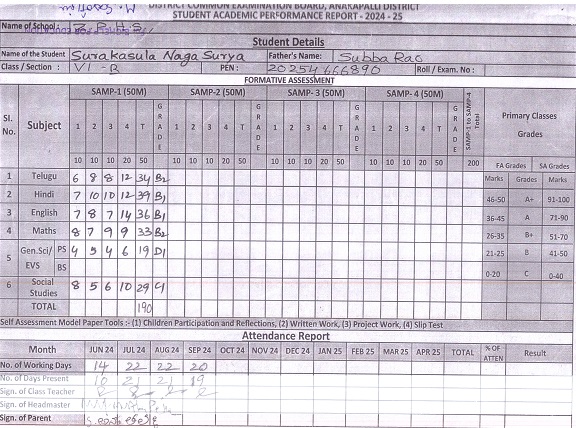 DISTRICT COMMON EXAMINATION BOARD, ANAKAPALLI DISTRICT
STUDENT ACADEMIC PERFORMANCE REPORT - 2024 - 25
Name of School : Z.P.H.S.
Student Details
Name of the Student Surakasula Naga Surya Father's Name: Subba Rao
Class / Section : VI - B PEN : 20254666890 Roll / Exam. No :
FORMATIVE ASSESSMENT
Sl. No. Subject SAMP-1 (50M) SAMP-2 (50M) SAMP- 3 (50M) SAMP- 4 (50M) SAMP-1 to SAMP-4 Total Primary Classes Grades
1 2 3 4 T GRADE 1 2 3 4 T GRADE 1 2 3 4 T GRADE 1 2 3 4 T GRADE
10 10 10 20 50 10 10 10 20 50 10 10 10 20 50 10 10 10 20 50 200
FA Grades SA Grades
Marks Grades Marks
1 Telugu 6 8 8 12 34 B2
2 Hindi 7 10 10 12 39 B1 46-50 A+ 91-100
3 English 7 8 7 14 36 B1 36-45 A 71-90
4 Maths 8 7 9 9 33 B2 26-35 B+ 51-70
5 Gen.Sci/ EVS PS 4 5 4 6 19 D1 21-25 B 41-50
BS 0-20 C 0-40
6 Social Studies 8 5 6 10 29 C1
TOTAL 190
Self Assessment Model Paper Tools :- (1) Children Participation and Reflections, (2) Written Work, (3) Project Work, (4) Slip Test
Attendance Report
Month JUN 24 JUL 24 AUG 24 SEP 24 OCT 24 NOV 24 DEC 24 JAN 25 FEB 25 MAR 25 APR 25 TOTAL % OF ATTEN Result
No. of Working Days 14 22 22 20
No. of Days Present 10 21 21 19
Sign. of Class Teacher
Sign. of Headmaster
Sign. of Parent